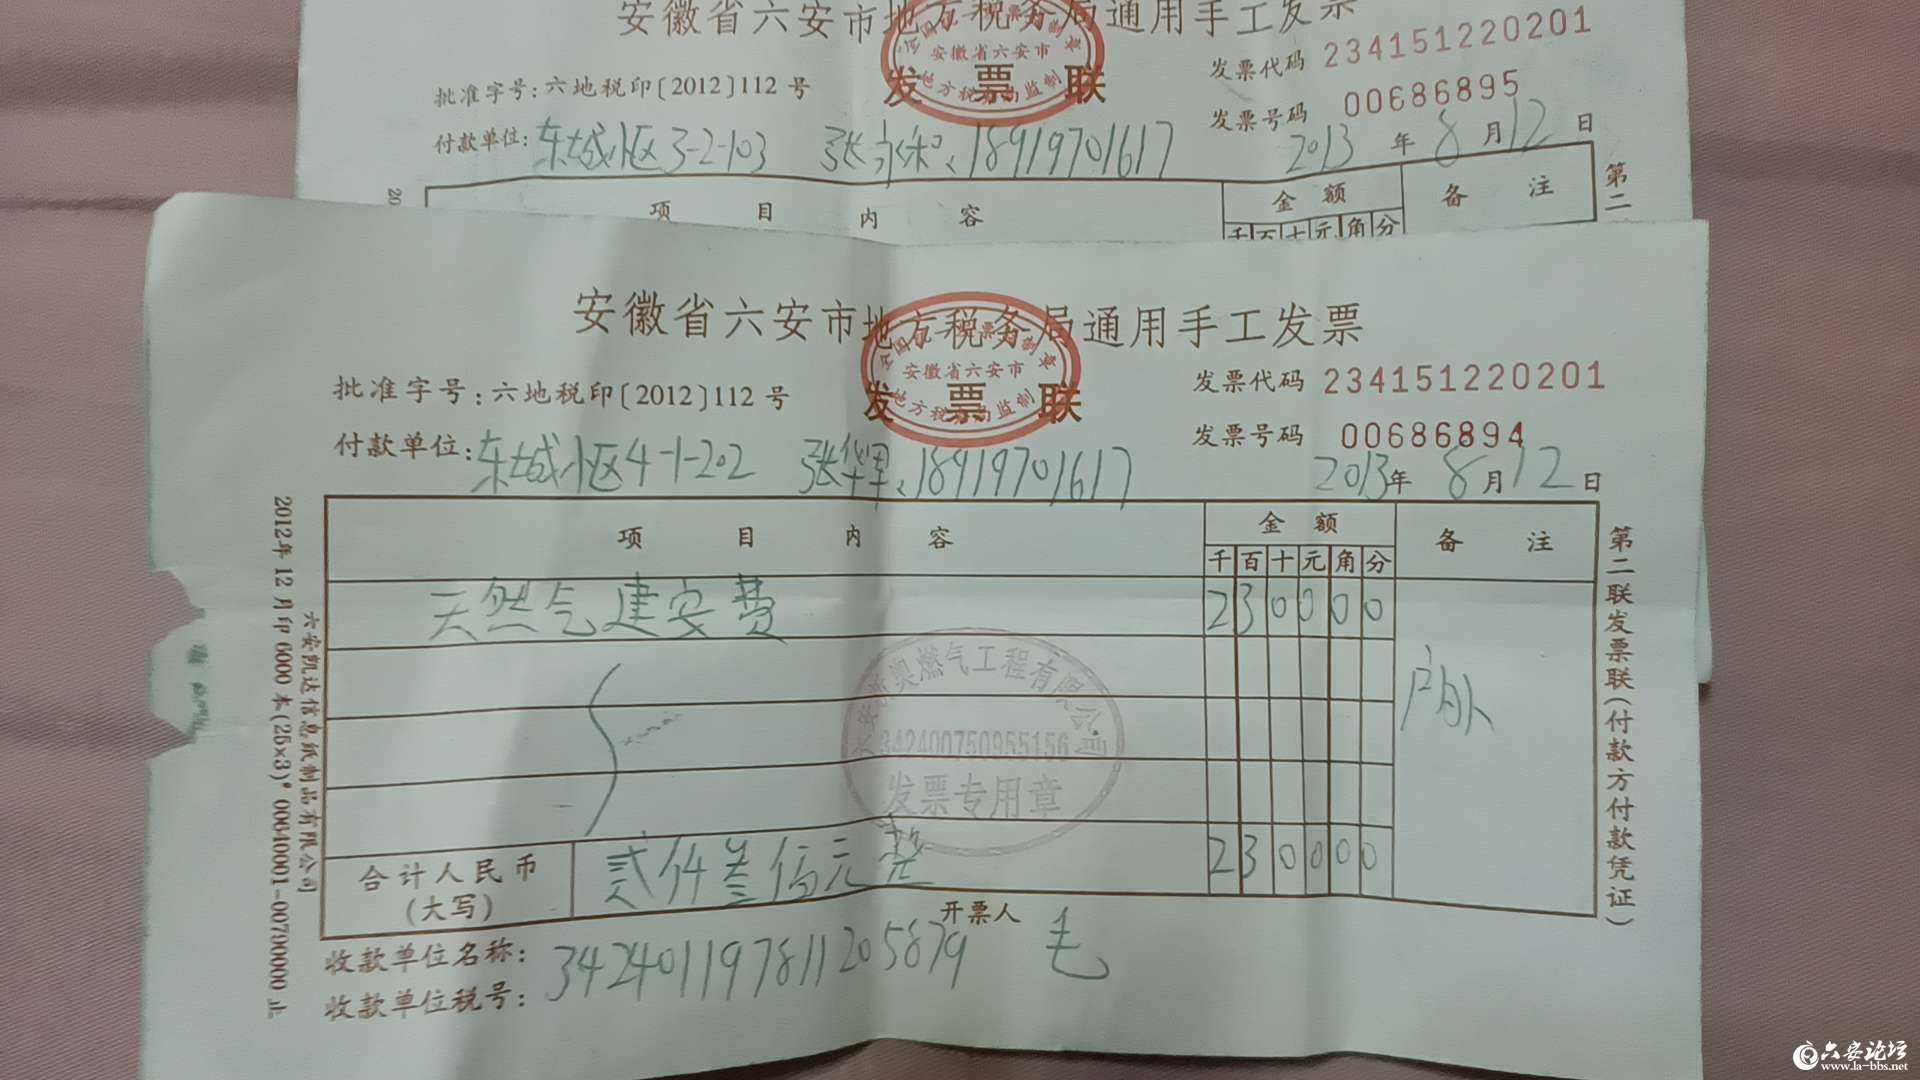 安徽省六安市地方税务局通用手工发票
批准字号:六地税印〔2012〕112号
发票联
安徽省六安市
地方税务局监制
发票代码 234151220201
发票号码 00686895
付款单位:东城小区3-2-103 张永和、18919701617
2013年8月12日
项目内容
金额
备注
千百十元角分
第二
安徽省六安市地方税务局通用手工发票
批准字号:六地税印〔2012〕112号
安徽省六安市
发票联
地方税务局监制
发票代码 234151220201
发票号码 00686894
付款单位:东城小区4-1-202 张华军、18919701617
2013年8月12日
项目内容
金额
备注
千百十元角分
天然气建安费
230000
户外
新奥燃气工程有限公司
342400750955156
发票专用章
合计人民币
(大写)
贰仟叁佰元整
230000
开票人 毛
收款单位名称:
342401197811205879
收款单位税号:
第二联发票联(付款方付款凭证)
六安凯达信息纸制品有限公司
2012年12月印6000本(25×3)*00640001-00790000止
六安论坛
www.la-bbs.net